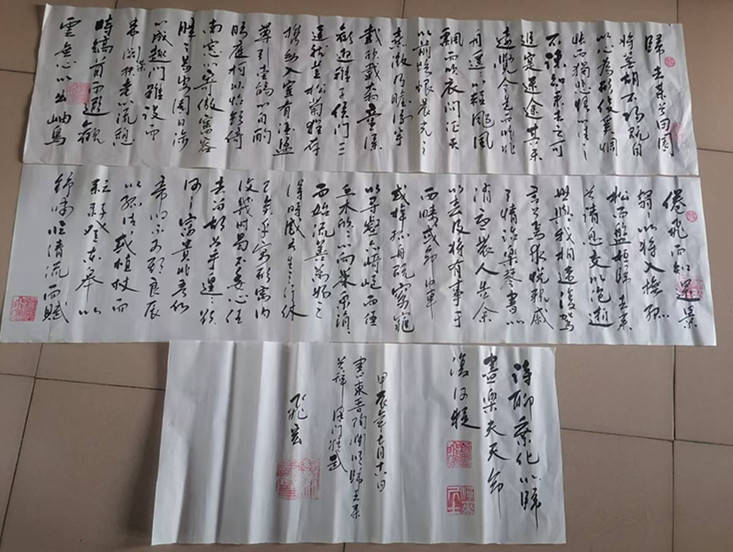 歸去来兮田園
將蕪胡不歸既自
以心為形役奚惆
悵而獨悲悟已往之
不諫知来者之可
追實迷途其未
遠覺今是而昨非
舟遥以輕颺風
飄而吹衣問征夫
以前路恨晨光之
熹微乃瞻衡宇
載欣載奔童僕
歡迎稚子候門三
逕就荒松菊猶存
携幼入室有酒盈
樽引壺觴以自酌
眄庭柯以怡顔倚
南窓以寄傲審容
膝之易安園日涉
以成趣門雖設而
常關策扶老以流憩
時矯首而遐觀
雲無心以出岫鳥
倦飛而知還景
翳以將入撫孤
松而盤桓歸去来
兮請息交以絶遊
世與我相違復駕
言兮焉求悦親戚
之情話樂琴書以
消憂農人告余
以春及將有事于
西疇或命巾車
或棹孤舟既窈窕
以尋壑亦崎嶇而經
丘木欣以向榮泉涓
而始流羡萬物之
得時感吾生之行休
已矣乎寓形宇内
復幾時曷不委心任
去留胡為乎遑遑欲
何之富貴非吾願
帝鄉不可期懷良辰
以孤往或植杖而
耘耔登東皋以
舒嘯臨清流而賦
詩聊乘化以歸
盡樂夫天命
復何疑
甲辰年七月十六日
書東晉陶淵明歸去来
兮辞